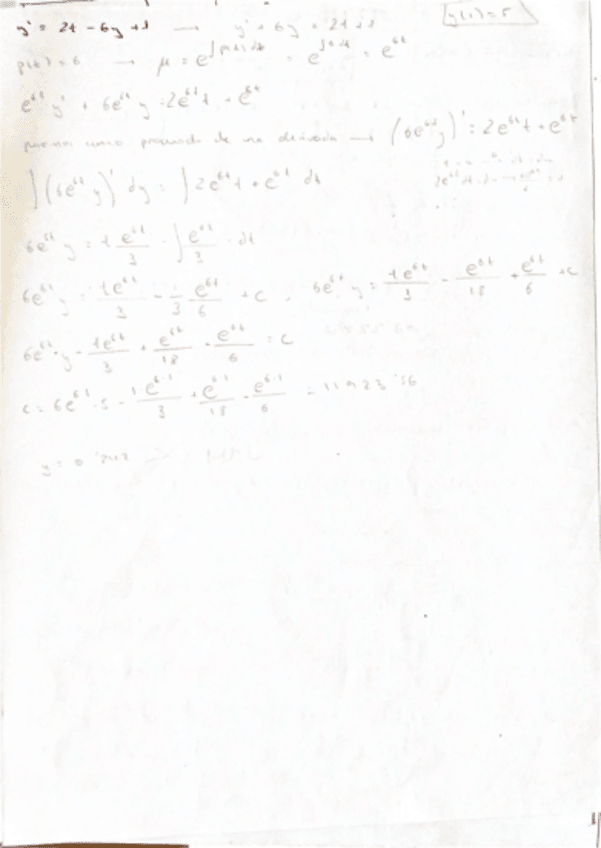 y' = 2t - 6y + 1 → y' + 6y = 2t + 1 y(1) = 5
p(t) = 6 → μ = e^∫p(t)dt = e^∫6dt = e^6t
e^6t y' + 6e^6t y = 2e^6t t + e^6t
como producto de una derivada → (6e^6t y)' = 2e^6t t + e^6t
∫(6e^6t y)' dy = ∫2e^6t t + e^6t dt
6e^6t y = t e^6t/3 - ∫e^6t/3 · dt
6e^6t y = te^6t/3 - 1/3 e^6t/6 + c , 6e^6t y = te^6t/3 - e^6t/18 + e^6t/6 + c
6e^6t · y - te^6t/3 + e^6t/18 - e^6t/6 = c
c = 6e^6·1 · 5 - 1e^6·1/3 + e^6·1/18 - e^6·1/6 = 11923'56
y = 0'242